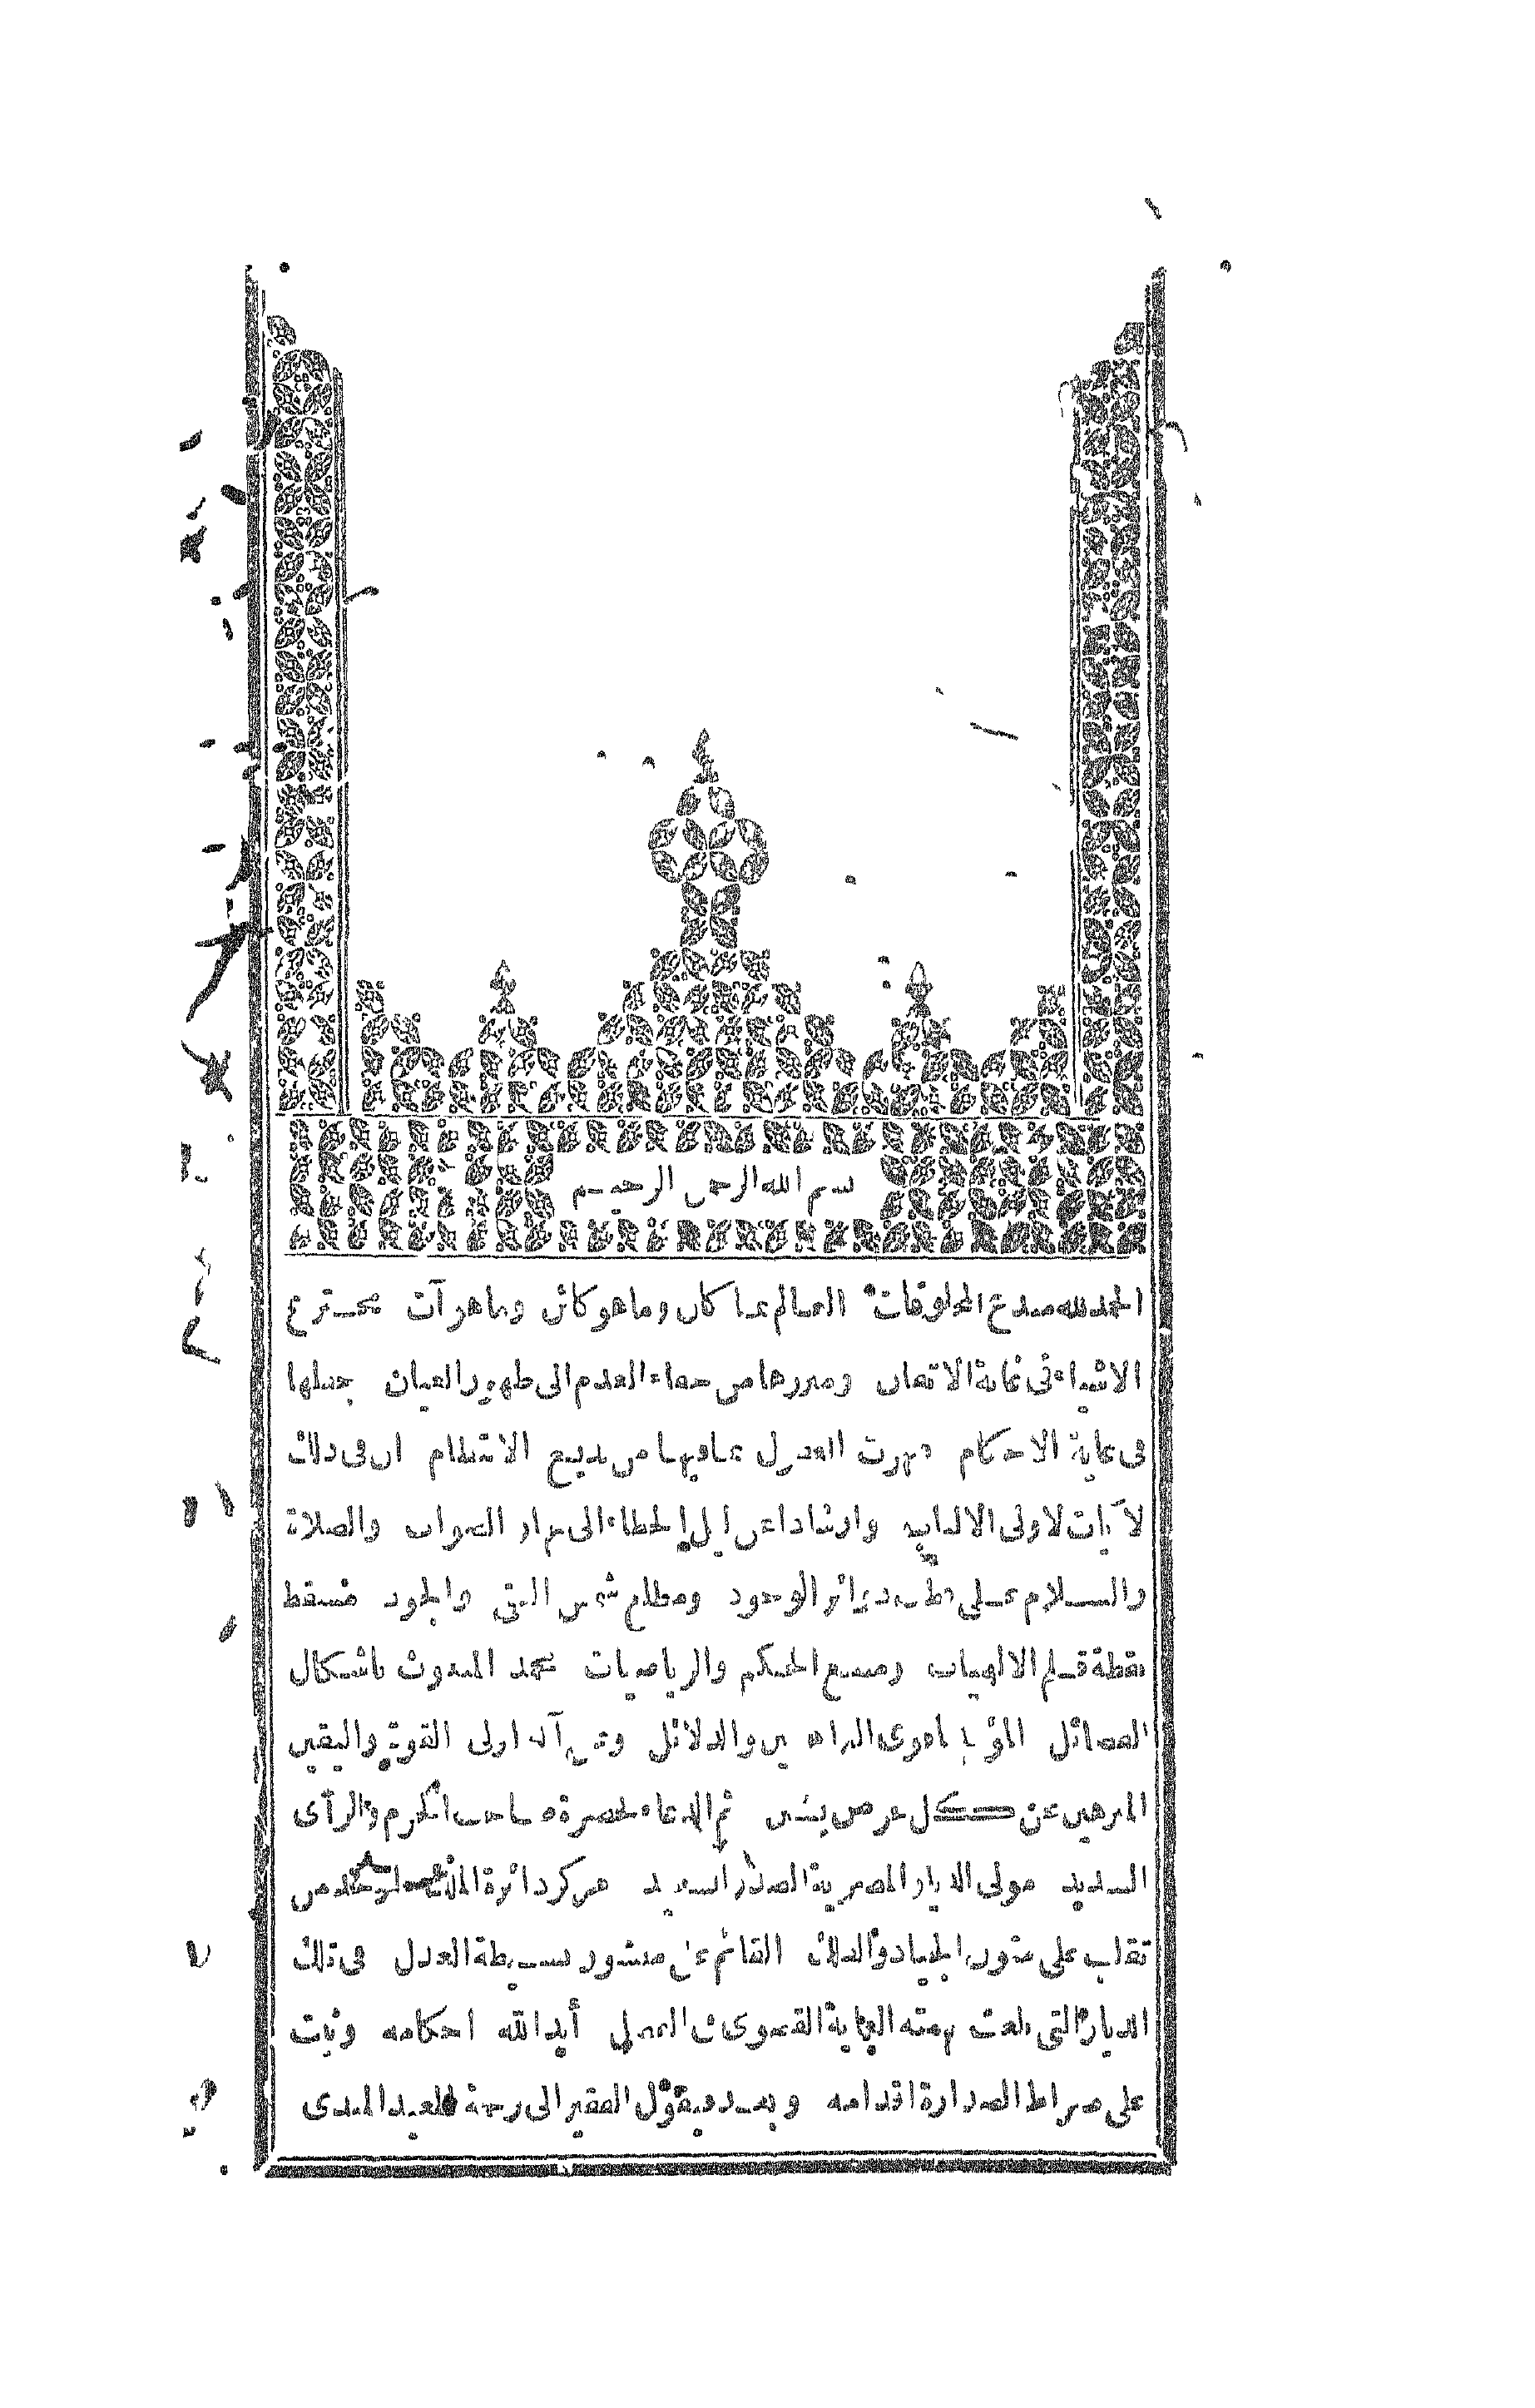 بسم الله الرحمن الرحيم
الحمد لله مبدع المخلوقات العالم بما كان وما هو كائن وما هو آت مخترع
الاشياء فى غاية الاتقان ومبرزها من خفاء العدم الى ظهور العيان جعلها
فى غاية الاحكام وبهرت العقول بما فيها من بديع الانتظام ان فى ذلك
لآيات لاولى الالباب وارشادا عن الخطاء الى الصواب والصلاة
والسلام على قطب دوائر الوجود ومطلع شمس والجود مسقط
نقطة قلم الالهيات ومنبع الحكم والرياضيات محمد المبعوث باشكال
الفضائل المؤيد باقوى البراهين والدلائل وعلى آله اولى القوة واليقين
المبرهين عن كل عرض يشين ثم الدعاء لحضرة صاحب الكرم والرآى
السديد مولى الديار المصرية الصدر السعيد مركز دائرة الملك من
تقلب على متون الجياد والفلك القائم على منشور بسيطة العدل فى تلك
الديار التى بلغت بهمته الغاية القصوى فى أيد الله احكامه وثبت
على صراط الصدارة اقدامه وبعد فيقول الفقير الى رحمة المعيد المبدى